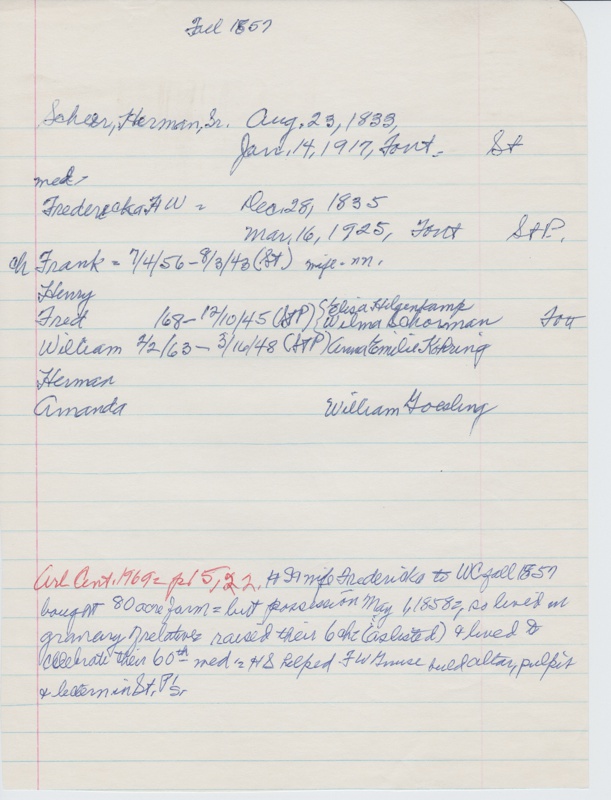 Fall 1857
Scheer, Herman, Sr. Aug. 23, 1833,
Jan. 14, 1917, Font. St
med-
Fredericka H W = Dec. 28, 1835
Mar. 16, 1925, Font St P.
ch Frank = 7/4/56 - 8/3/43 (St) wife - nn.
Henry
Fred 168 - 12/10/45 (St P) { Elisa Hilgenkamp
Wilma Schorman Fon
William 2/2/63 - 3/16/48 (St P) Anna Emilie Kohring
Herman
Amanda William Goesling
Arl Cent. 1969 = p 15, 22. H & wife Fredericka to WC fall 1857
bought 80 acre farm = but possession May 1, 1858 =, so lived in
granary of relative = raised their 6 ch (as listed) & lived to
celebrate their 60th wed = HS helped F W Gruse build altar, pulpit
& lectern in St. P's.